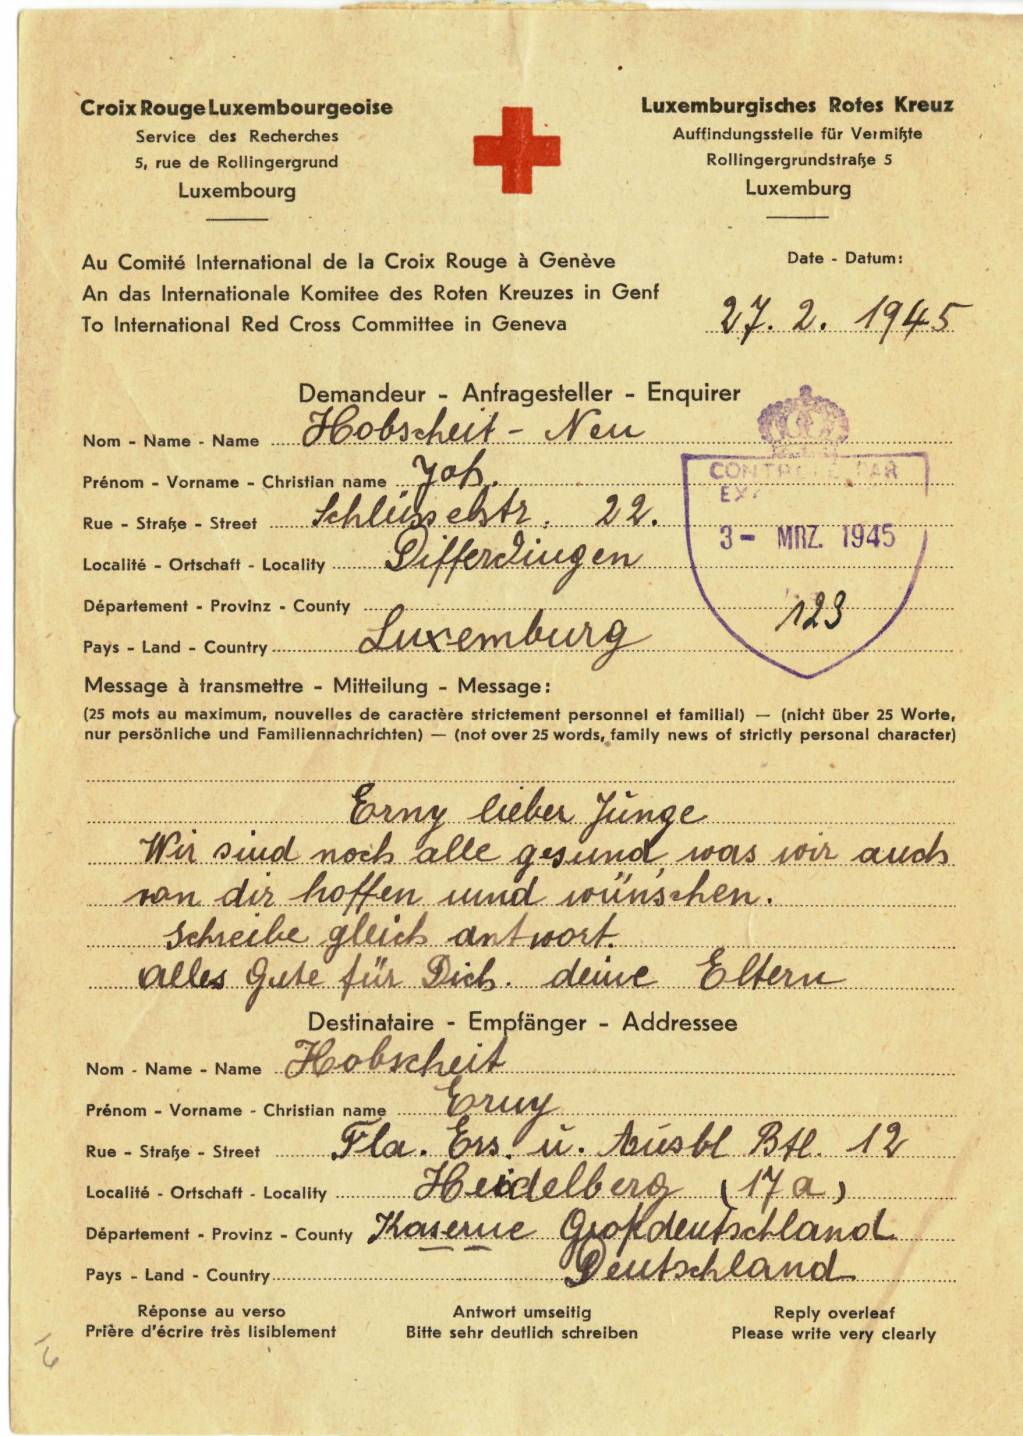 Croix Rouge Luxembourgeoise
Service des Recherches
5, rue de Rollingergrund
Luxembourg
Luxemburgisches Rotes Kreuz
Auffindungsstelle für Vermißte
Rollingergrundstraße 5
Luxemburg
Au Comité International de la Croix Rouge à Genève
An das Internationale Komitee des Roten Kreuzes in Genf
To International Red Cross Committee in Geneva
Date - Datum:
27. 2. 1945
Demandeur - Anfragesteller - Enquirer
Nom - Name - Name Hobscheit - Neu
Prénom - Vorname - Christian name Joh.
Rue - Straße - Street Schlüsselstr. 22.
Localité - Ortschaft - Locality Differdingen
Département - Provinz - County
Pays - Land - Country Luxemburg
CONTROLE PAR
3 - MRZ. 1945
123
Message à transmettre - Mitteilung - Message:
(25 mots au maximum, nouvelles de caractère strictement personnel et familial) — (nicht über 25 Worte,
nur persönliche und Familiennachrichten) — (not over 25 words, family news of strictly personal character)
Erny lieber Junge
Wir sind noch alle gesund, was wir auch
von dir hoffen und wünschen.
Schreibe gleich antwort.
alles Gute für Dich. deine Eltern
Destinataire - Empfänger - Addressee
Nom - Name - Name Hobscheit
Prénom - Vorname - Christian name Erny
Rue - Straße - Street Fla. Ers. u. Ausbl Btl. 12
Localité - Ortschaft - Locality Heidelberg (17a)
Département - Provinz - County Kaserne Großdeutschland
Pays - Land - Country Deutschland
Réponse au verso
Prière d'écrire très lisiblement
Antwort umseitig
Bitte sehr deutlich schreiben
Reply overleaf
Please write very clearly